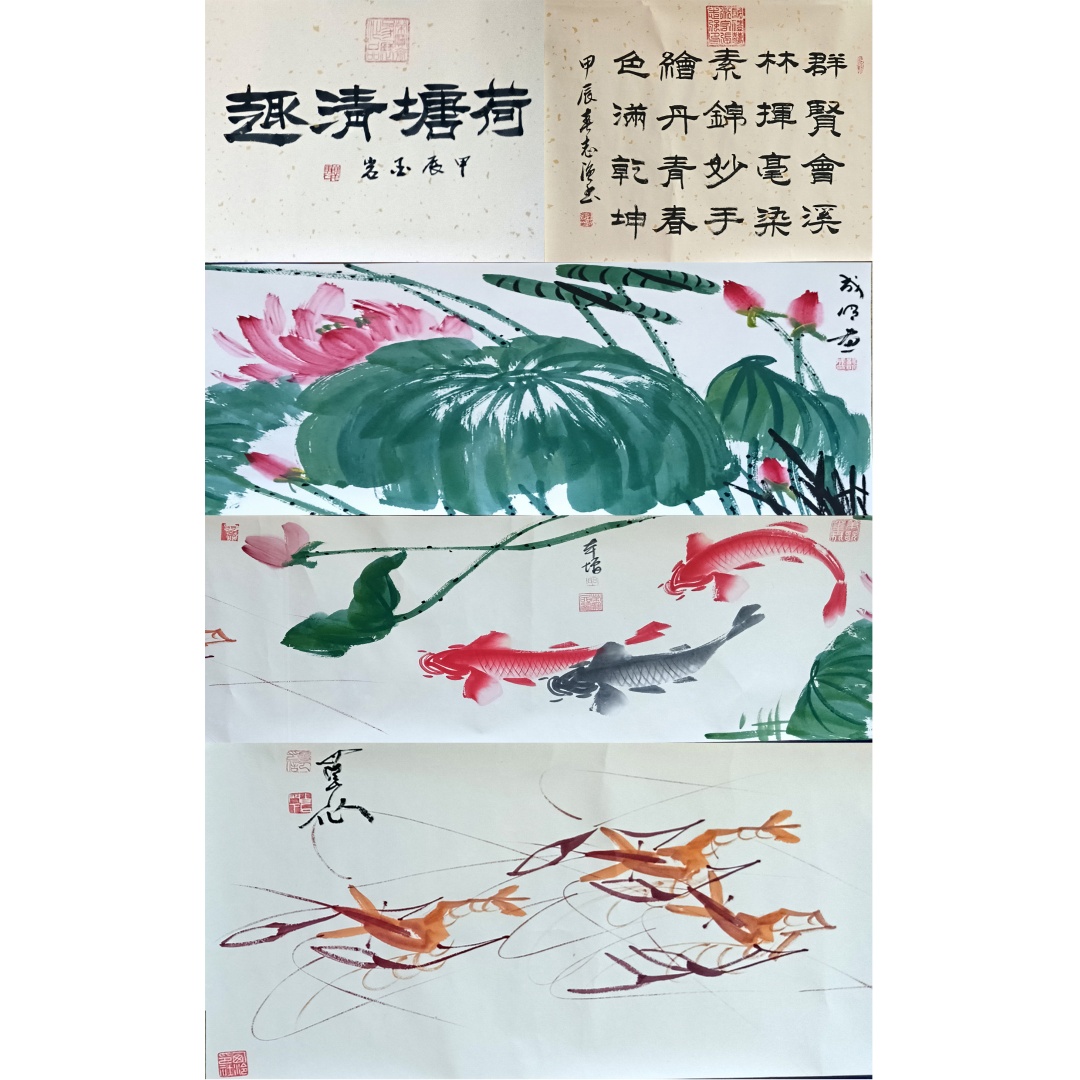 荷塘清趣
甲辰玉岩
群賢會溪
林揮毫染
素錦妙手
繪丹青春
色滿乾坤
甲辰春志書
明画